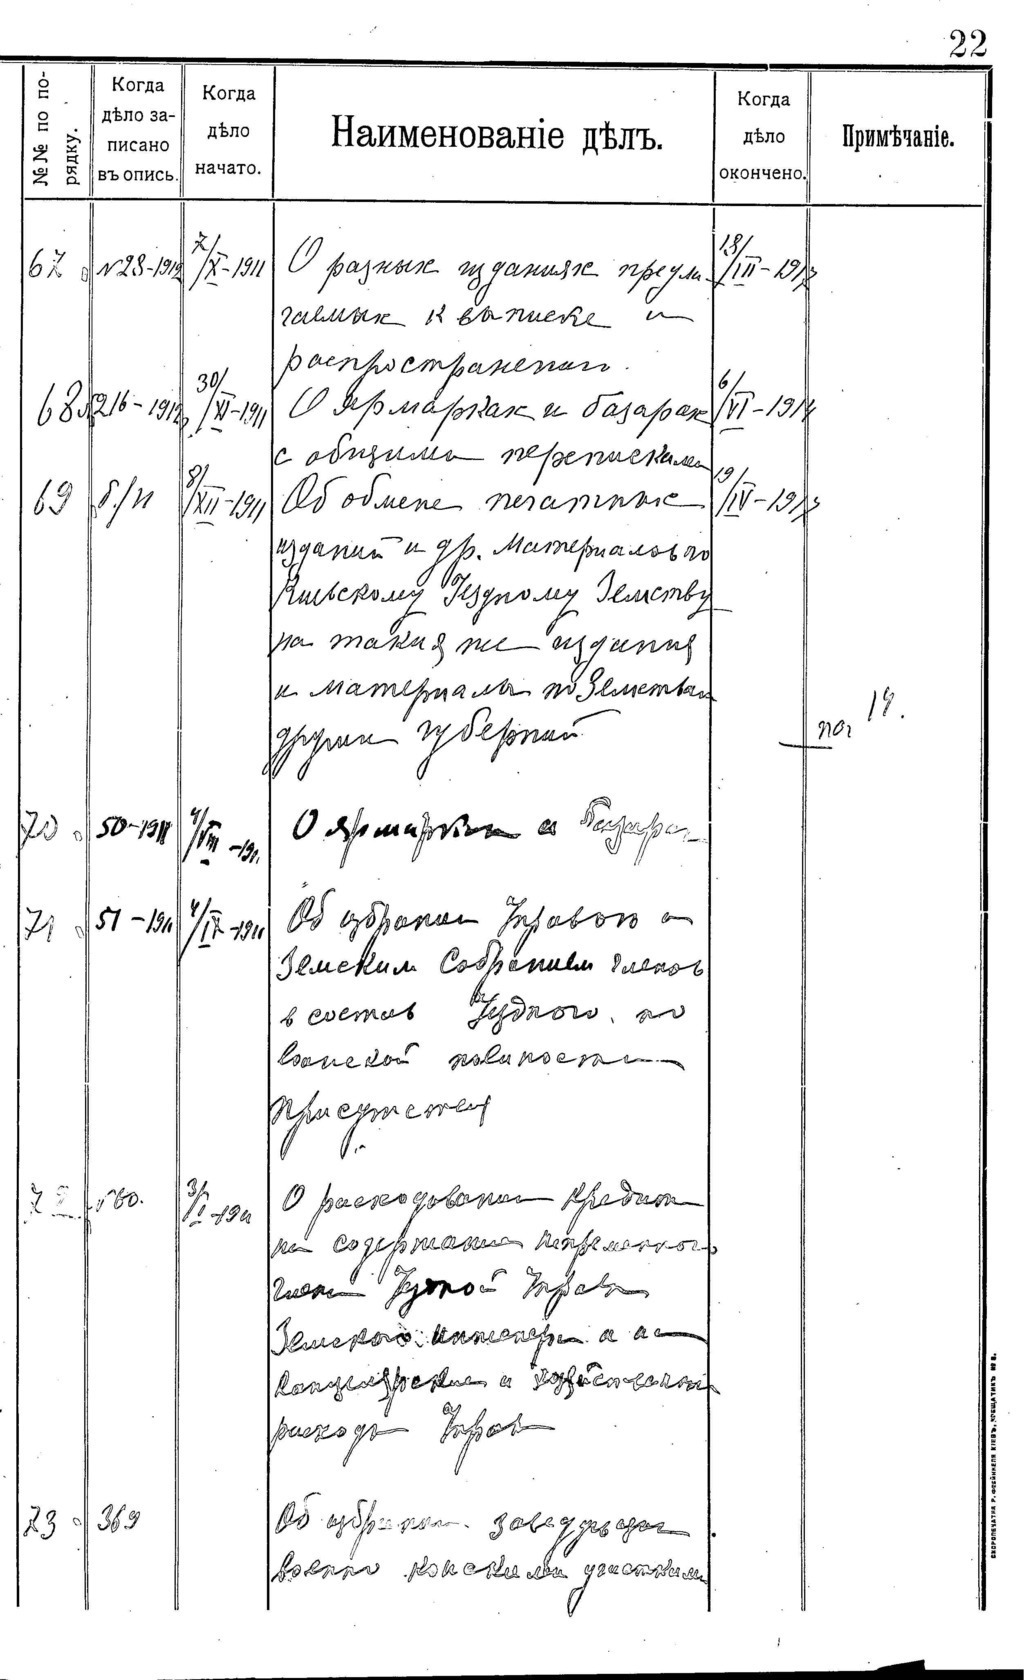 22
№№ по по-
рядку.
Когда
дѣло за-
писано
въ опись.
Когда
дѣло
начато.
Наименованіе дѣлъ.
Когда
дѣло
окончено.
Примѣчаніе.
67 N 28-1912 7/X-1911 О разных изданиях предла- 13/III-1917
гаемых к выписке и
распространению.
68 216-1912 30/XI-1911 О ярмарках и базарах 6/VI-1914
с общими переписками
69 б/н 8/XII-1911 Об обмене печатных 19/IV-1917
изданий и др. материалов по
Киевскому Уездному Земству
на такия же издания
и материалы по Земствам
других губерний
19.
70 50-1911 4/VIII-1911 О ярмарках и базарах
71 51-1911 4/IX-1911 Об избрании Управою и
Земским Собранием членов
в состав Уездного по
воинской повинности
присутствия
72 3/I-1911 О расходовании кредита
на содержание непременного
члена Уездной Управы
Земского инженера и
канцелярские и хозяйственные
расходы Управы
73 369 Об избрании заведующих
военно конскими участками
СКОРОПЕЧАТНЯ Р. КІЕВЪ, № 8.